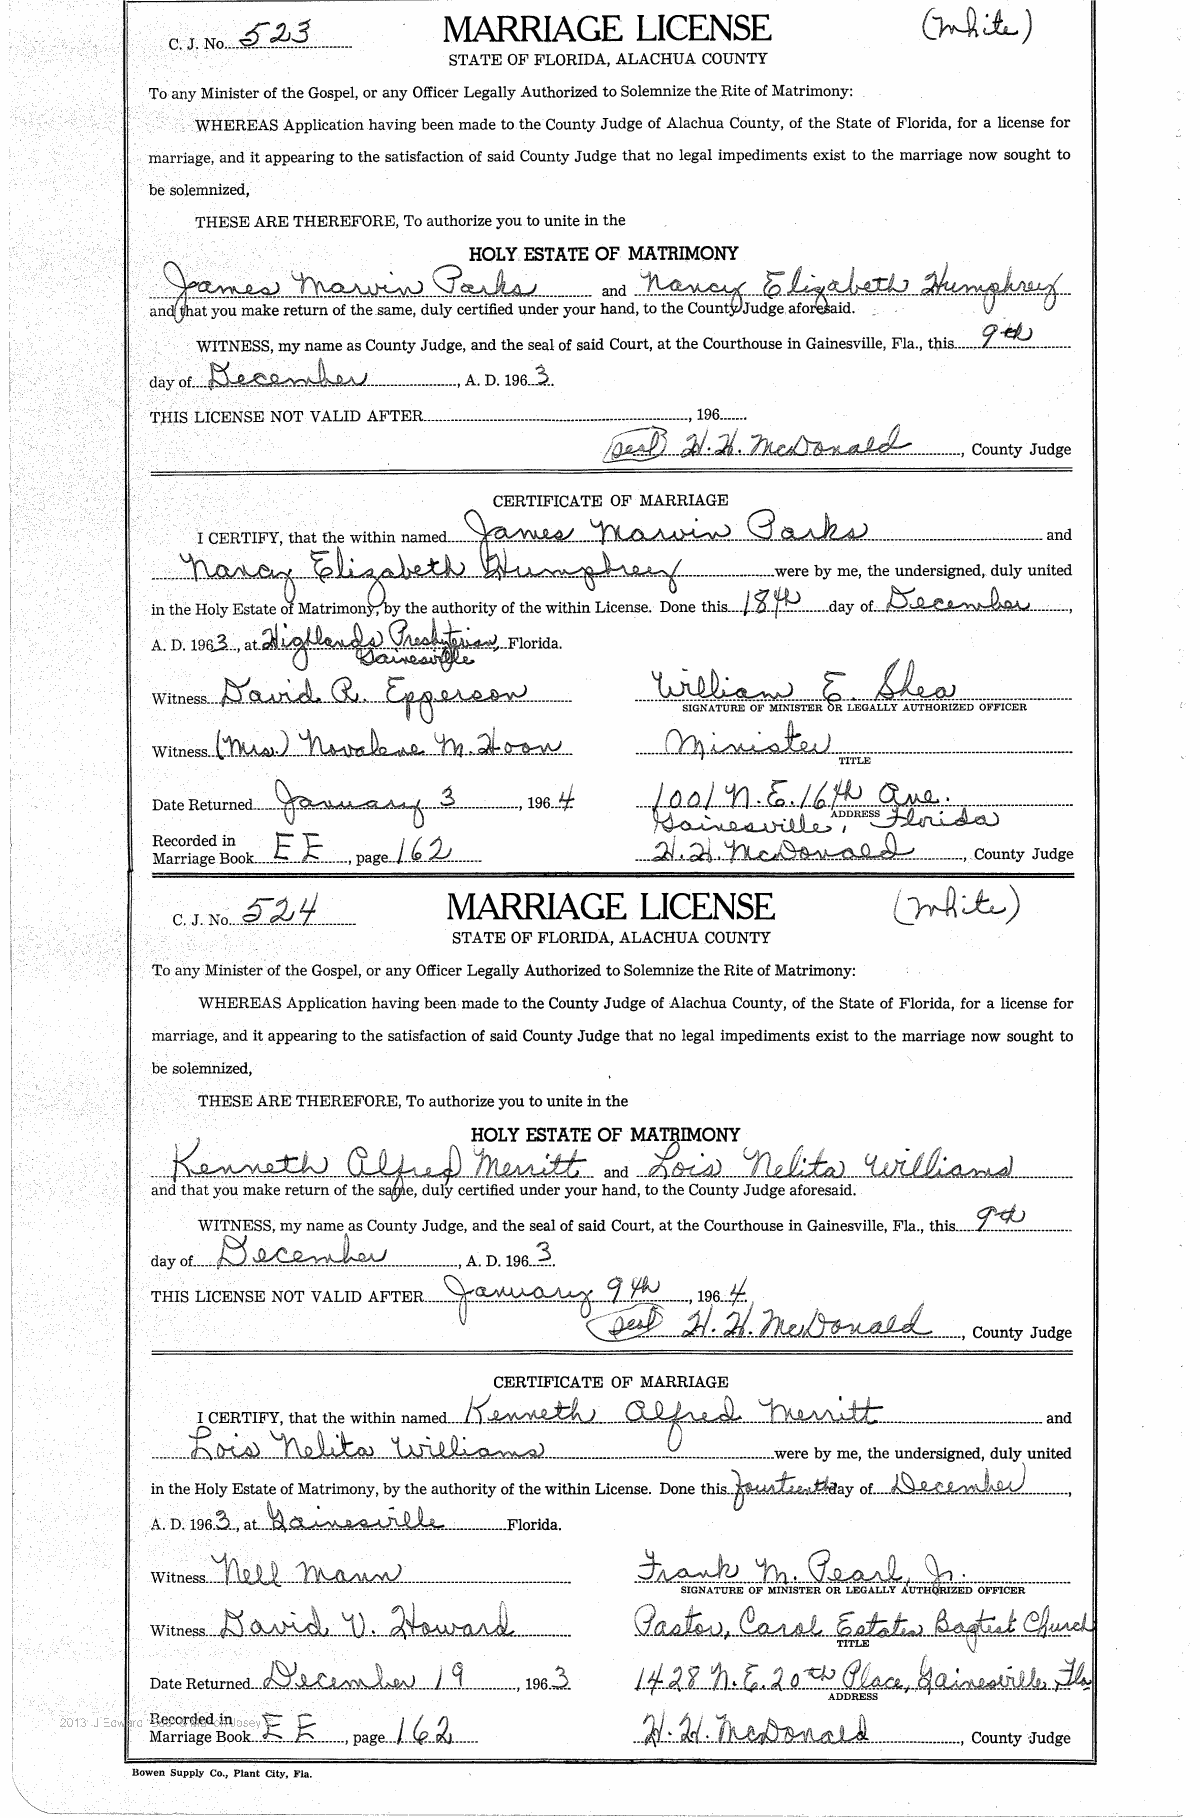 C. J. No. 523 MARRIAGE LICENSE (White)
STATE OF FLORIDA, ALACHUA COUNTY
To any Minister of the Gospel, or any Officer Legally Authorized to Solemnize the Rite of Matrimony:
WHEREAS Application having been made to the County Judge of Alachua County, of the State of Florida, for a license for
marriage, and it appearing to the satisfaction of said County Judge that no legal impediments exist to the marriage now sought to
be solemnized,
THESE ARE THEREFORE, To authorize you to unite in the
HOLY ESTATE OF MATRIMONY
James Marvin Parks and Nancy Elizabeth Humphrey
and that you make return of the same, duly certified under your hand, to the County Judge aforesaid.
WITNESS, my name as County Judge, and the seal of said Court, at the Courthouse in Gainesville, Fla., this 9th
day of December, A. D. 1963.
THIS LICENSE NOT VALID AFTER , 196
(Seal) H. H. McDonald, County Judge
CERTIFICATE OF MARRIAGE
I CERTIFY, that the within named James Marvin Parks and
Nancy Elizabeth Humphrey were by me, the undersigned, duly united
in the Holy Estate of Matrimony, by the authority of the within License. Done this 18th day of December,
A. D. 1963, at Highlands Presbyterian, Florida.
Gainesville
Witness David R. Epperson William E. Shea
SIGNATURE OF MINISTER OR LEGALLY AUTHORIZED OFFICER
Witness (Mrs.) Novalene M. Hoon Minister
TITLE
Date Returned January 3, 1964 1001 N.E. 16th Ave.
ADDRESS
Gainesville, Florida
Recorded in
Marriage Book EE, page 162 H. H. McDonald, County Judge
C. J. No. 524 MARRIAGE LICENSE (White)
STATE OF FLORIDA, ALACHUA COUNTY
To any Minister of the Gospel, or any Officer Legally Authorized to Solemnize the Rite of Matrimony:
WHEREAS Application having been made to the County Judge of Alachua County, of the State of Florida, for a license for
marriage, and it appearing to the satisfaction of said County Judge that no legal impediments exist to the marriage now sought to
be solemnized,
THESE ARE THEREFORE, To authorize you to unite in the
HOLY ESTATE OF MATRIMONY
Kenneth Alfred Merritt and Lois Nelita Williams
and that you make return of the same, duly certified under your hand, to the County Judge aforesaid.
WITNESS, my name as County Judge, and the seal of said Court, at the Courthouse in Gainesville, Fla., this 9th
day of December, A. D. 1963.
THIS LICENSE NOT VALID AFTER January 9th, 1964.
(Seal) H. H. McDonald, County Judge
CERTIFICATE OF MARRIAGE
I CERTIFY, that the within named Kenneth Alfred Merritt and
Lois Nelita Williams were by me, the undersigned, duly united
in the Holy Estate of Matrimony, by the authority of the within License. Done this fourteenth day of December,
A. D. 1963, at Gainesville Florida.
Witness Nell Mann Frank M. Pearl, Jr.
SIGNATURE OF MINISTER OR LEGALLY AUTHORIZED OFFICER
Witness David V. Howard Pastor, Carol Estates Baptist Church
TITLE
Date Returned December 19, 1963 1428 N.E. 20th Place, Gainesville, Fla
ADDRESS
2013 J Edward
Recorded in
Marriage Book EE, page 162 H. H. McDonald, County Judge
Bowen Supply Co., Plant City, Fla.